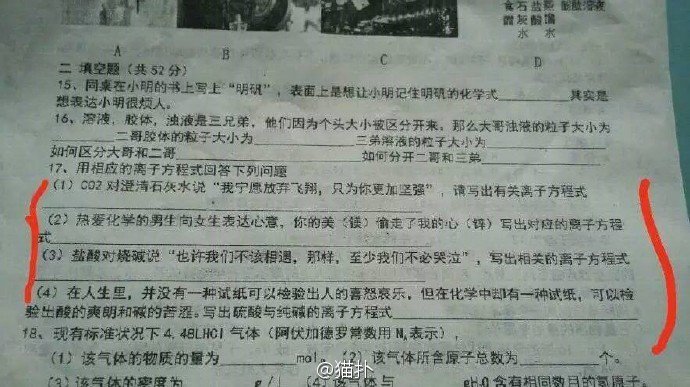 食 石 盐 脂肪溶液
醋 灰 酸 馏
水 水
A B C D
二 填空题（共52分）
15、同桌在小明的书上写上“明矾”，表面上是想让小明记住明矾的化学式____________其实是
想表达小明很烦人。
16、溶液，胶体，浊液是三兄弟，他们因为个头大小被区分开来，那么大哥浊液的粒子大小为
____________二哥胶体的粒子大小为____________三弟溶液的粒子大小为____________
如何区分大哥和二哥____________如何分开二哥和三弟____________
17、用相应的离子方程式回答下列问题
（1）CO2对澄清石灰水说“我宁愿放弃飞翔，只为你更加坚强”，请写出有关离子方程式
（2）热爱化学的男生向女生表达心意，你的美（镁）偷走了我的心（锌）写出对应的离子方程
式____________
（3）盐酸对烧碱说“也许我们不该相遇，那样，至少我们不必哭泣”，写出相关的离子方程式
（4）在人生里，并没有一种试纸可以检验出人的喜怒哀乐，但在化学中却有一种试纸，可以检
验出酸的爽朗和碱的苦涩。写出硫酸与纯碱的离子方程式____________
18、现有标准状况下4.48LHCl气体（阿伏加德罗常数用Nₐ表示），
（1）该气体的物质的量为________mol。（2）该气体所含原子总数为________个。
（3）该气体的密度为________g/l （4）该气体与________gH₂O含有相同数目的氢原子
@猫扑